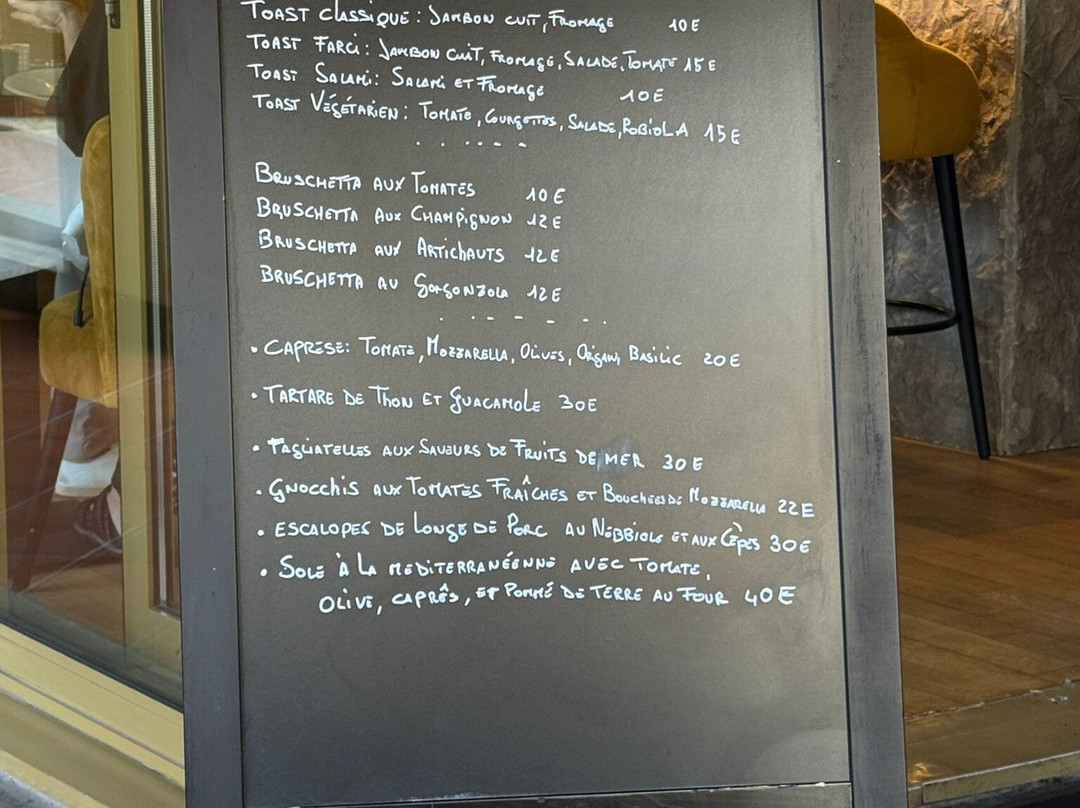 Toast Classique : Jambon cuit, Fromage 10€
Toast Farci : Jambon cuit, Fromage, Salade, Tomate 15€
Toast Salami : Salami et Fromage 10€
Toast Végétarien : Tomate, Courgettes, Salade, Robiola 15€
Bruschetta aux Tomates 10€
Bruschetta aux Champignon 12€
Bruschetta aux Artichauts 12€
Bruschetta au Gorgonzola 12€
• Caprese : Tomate, Mozzarella, Olives, Origan, Basilic 20€
• Tartare de Thon et Guacamole 30€
• Tagliatelles aux Saveurs de Fruits de mer 30€
• Gnocchis aux Tomates Fraîches et Bouchees de Mozzarella 22€
• Escalopes de Longe de Porc au Nebbiolo et aux Cèpes 30€
• Sole à la mediterranéenne avec tomate,
olive, caprês, et pommé de terre au four 40€